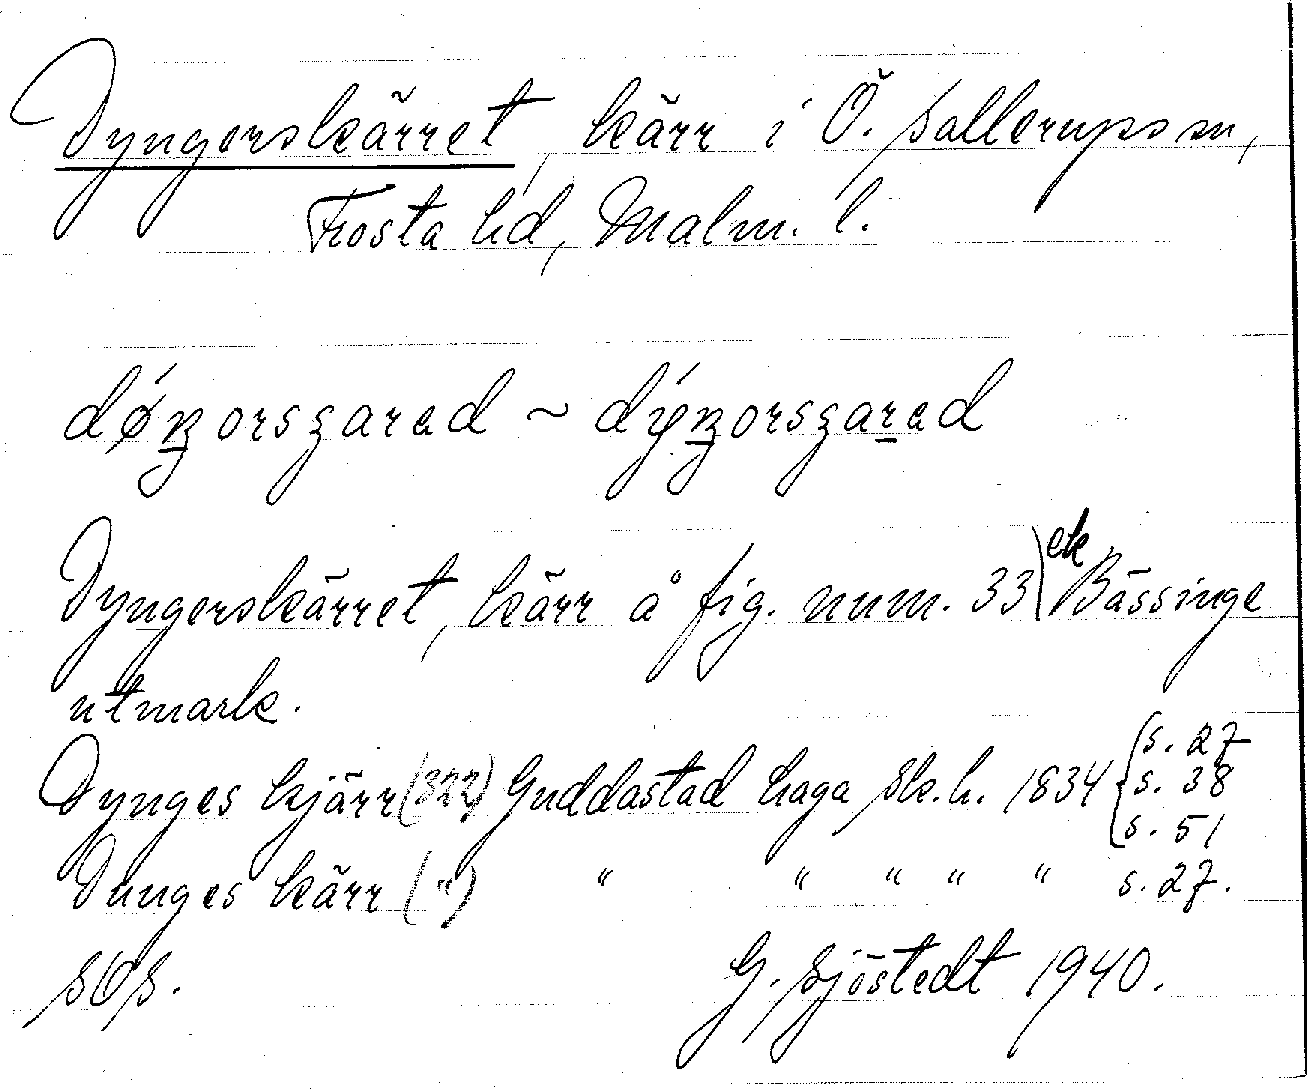 Dyngerskärret, kärr i Ö. Sallerups sn,
Frosta hd, Malm. l.
Dyngerskärret, kärr å fig. num. 33) ek Bässinge
utmark.
Dynges kjärr (322) Guddastad haga Sk.h. 1834 { s. 27
s. 38
s. 51
Dunges kärr (") " " " " " s. 27.
SOS. G. Sjöstedt 1940.